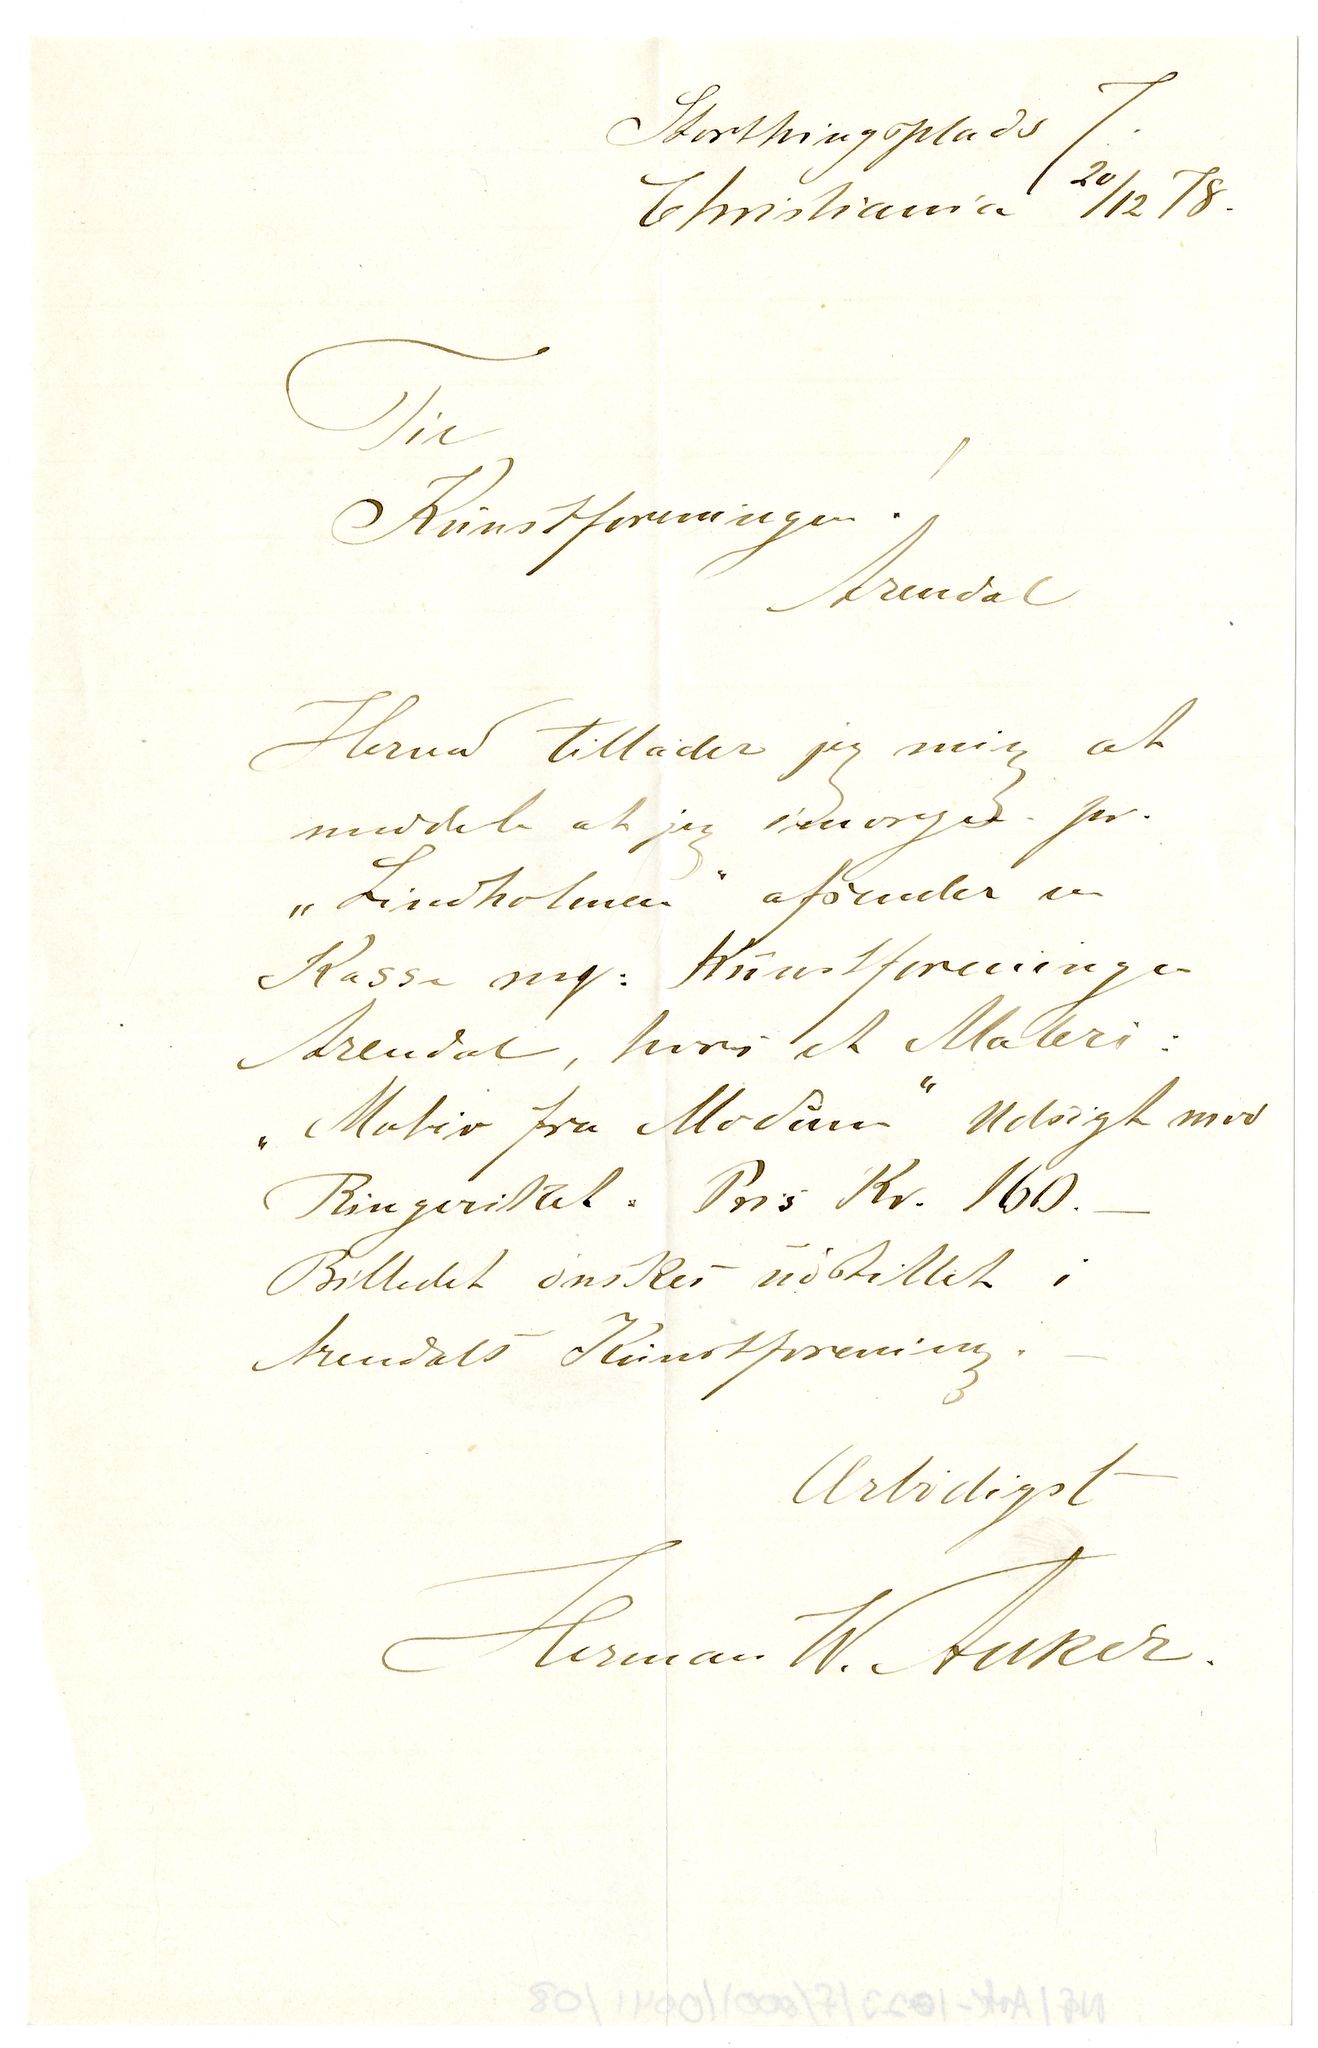 Storthingsplads 7.
Christiania 20/12 78.
Til
Kunstforeningen!
Arendal
Herved tillader jeg mig at
meddele at jeg imorgen pr.
„Lindholmen" afsender en
Kasse mrk: Kunstforeningen
Arendal, hvori et Maleri:
„Motiv fra Modum" Udsigt mod
Ringeriket. Pris Kr. 160.—
Billedet ønskes udstillet i
Arendals Kunstforening.—
Ærbødigst
Herman W. Anker.